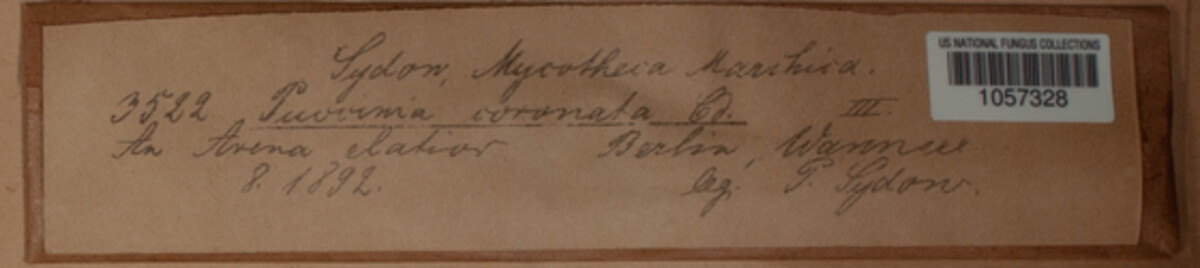 Sydow, Mycotheca Marchica.
US NATIONAL FUNGUS COLLECTIONS
1057328
3522 Puccinia coronata Cd. III.
An Avena elatior Berlin, Wannsee
8. 1892. leg. P. Sydow.